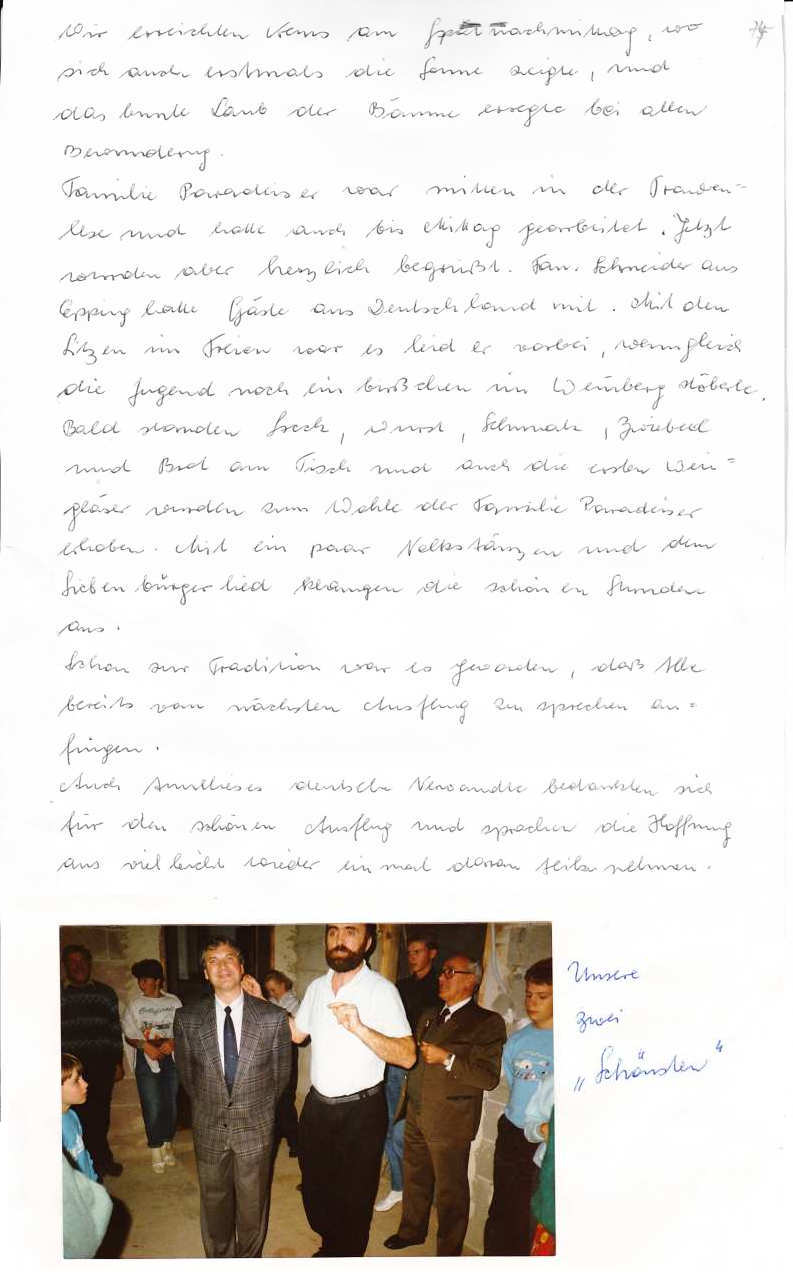 Wir erreichten Krems am Spätnachmittag, wo
sich auch erstmals die Sonne zeigte, und
das bunte Laub der Bäume erregte bei allen
Bewunderung.
Familie Paradeiser war mitten in der Trauben=
lese und hatte auch bis Mittag gearbeitet. Jetzt
wurden aber herzlich begrüßt. Fam. Schneider aus
Epping hatte Gäste aus Deutschland mit. Mit dem
Sitzen im Freien war es leider vorbei, wenngleich
die Jugend noch ein bißchen im Weinberg stöberte.
Bald standen Speck, Wurst, Schmalz, Zwiebel
und Brot am Tisch und auch die ersten Wein=
gläser wurden zum Wohle der Familie Paradeiser
erhoben. Mit ein paar Volkstänzen und dem
Siebenbürgerlied klangen die schönen Stunden
aus.
Schon zur Tradition war es geworden, daß Alle
bereits vom nächsten Ausflug zu sprechen an=
fingen.
Auch Annelieses deutsche Verwandte bedankten sich
für den schönen Ausflug und sprachen die Hoffnung
aus vielleicht wieder einmal daran teilzunehmen.
Unsere
zwei
„Schönsten“